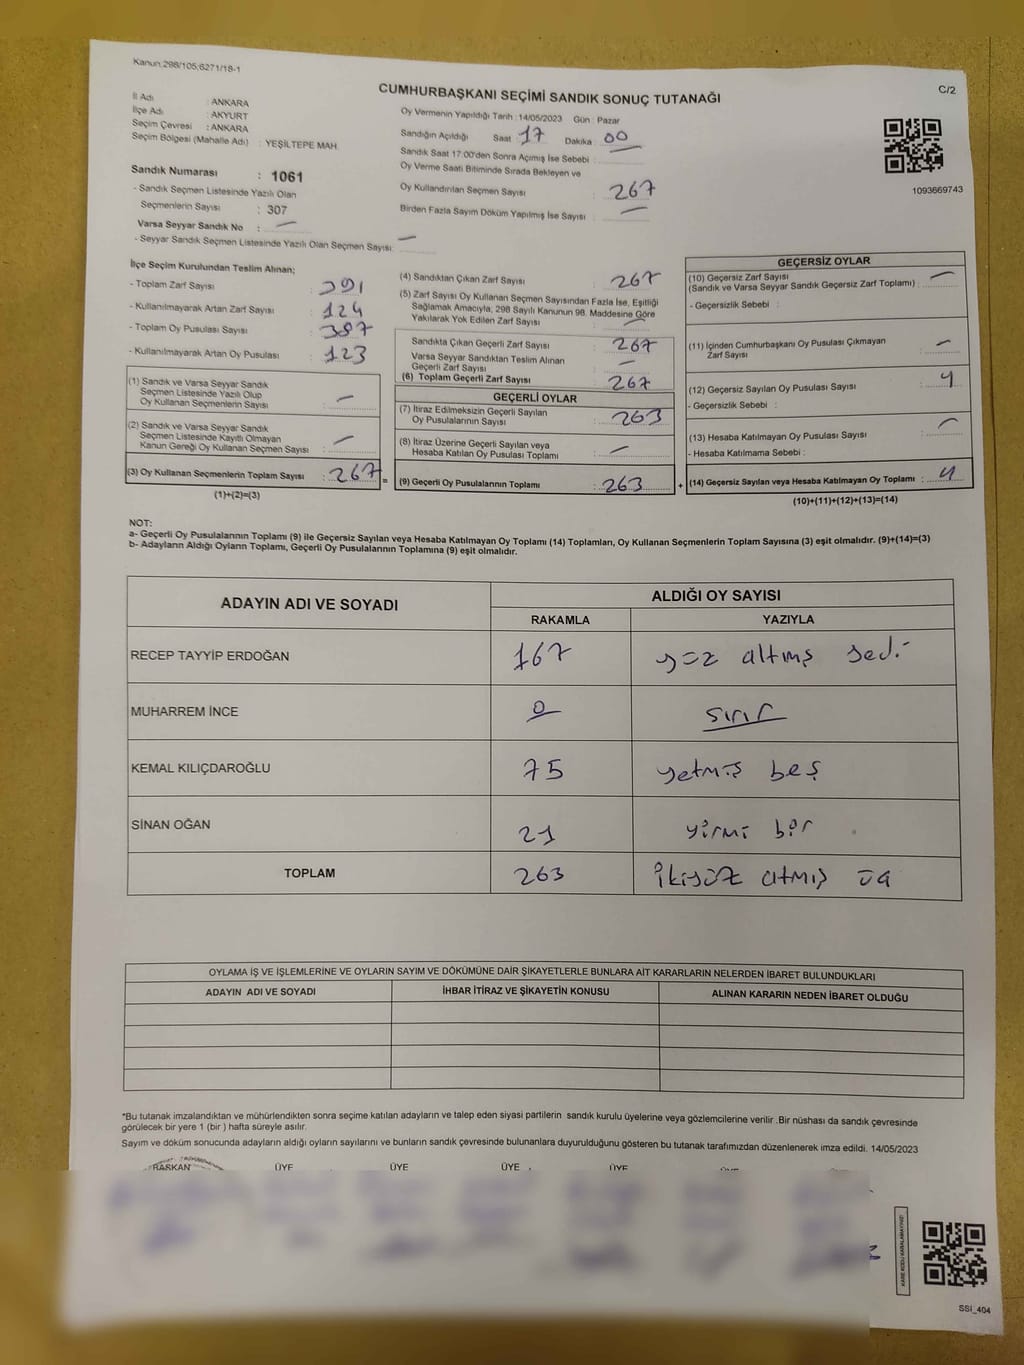 Kanun:298/105;6271/18-1
C/2
CUMHURBAŞKANI SEÇİMİ SANDIK SONUÇ TUTANAĞI
İl Adı : ANKARA
İlçe Adı : AKYURT
Seçim Çevresi : ANKARA
Seçim Bölgesi (Mahalle Adı) : YEŞİLTEPE MAH.
Sandık Numarası : 1061
- Sandık Seçmen Listesinde Yazılı Olan
Seçmenlerin Sayısı : 307
Varsa Seyyar Sandık No : —
- Seyyar Sandık Seçmen Listesinde Yazılı Olan Seçmen Sayısı: —
Oy Vermenin Yapıldığı Tarih : 14/05/2023 Gün : Pazar
Sandığın Açıldığı Saat 17 Dakika 00
Sandık Saat 17:00'den Sonra Açılmış İse Sebebi :
Oy Verme Saati Bitiminde Sırada Bekleyen ve
Oy Kullandırılan Seçmen Sayısı : 267
Birden Fazla Sayım Döküm Yapılmış İse Sayısı : —
1093669743
İlçe Seçim Kurulundan Teslim Alınan;
- Toplam Zarf Sayısı : 391
- Kullanılmayarak Artan Zarf Sayısı : 124
- Toplam Oy Pusulası Sayısı : 387
- Kullanılmayarak Artan Oy Pusulası : 123
(1) Sandık ve Varsa Seyyar Sandık
Seçmen Listesinde Yazılı Olup
Oy Kullanan Seçmenlerin Sayısı : —
(2) Sandık ve Varsa Seyyar Sandık
Seçmen Listesinde Kayıtlı Olmayan
Kanun Gereği Oy Kullanan Seçmen Sayısı : —
(3) Oy Kullanan Seçmenlerin Toplam Sayısı : 267 =
(1)+(2)=(3)
(4) Sandıktan Çıkan Zarf Sayısı : 267
(5) Zarf Sayısı Oy Kullanan Seçmen Sayısından Fazla İse, Eşitliği
Sağlamak Amacıyla, 298 Sayılı Kanunun 98. Maddesine Göre
Yakılarak Yok Edilen Zarf Sayısı : —
Sandıkta Çıkan Geçerli Zarf Sayısı : 267
Varsa Seyyar Sandıktan Teslim Alınan
Geçerli Zarf Sayısı : —
(6) Toplam Geçerli Zarf Sayısı : 267
GEÇERLİ OYLAR
(7) İtiraz Edilmeksizin Geçerli Sayılan
Oy Pusulalarının Sayısı : 263
(8) İtiraz Üzerine Geçerli Sayılan veya
Hesaba Katılan Oy Pusulası Toplamı : —
(9) Geçerli Oy Pusulalarının Toplamı : 263 +
GEÇERSİZ OYLAR
(10) Geçersiz Zarf Sayısı —
(Sandık ve Varsa Seyyar Sandık Geçersiz Zarf Toplamı) :
- Geçersizlik Sebebi :
(11) İçinden Cumhurbaşkanı Oy Pusulası Çıkmayan
Zarf Sayısı : —
(12) Geçersiz Sayılan Oy Pusulası Sayısı : 4
- Geçersizlik Sebebi :
(13) Hesaba Katılmayan Oy Pusulası Sayısı : —
- Hesaba Katılmama Sebebi :
(14) Geçersiz Sayılan veya Hesaba Katılmayan Oy Toplamı : 4
(10)+(11)+(12)+(13)=(14)
NOT:
a- Geçerli Oy Pusulalarının Toplamı (9) ile Geçersiz Sayılan veya Hesaba Katılmayan Oy Toplamı (14) Toplamları, Oy Kullanan Seçmenlerin Toplam Sayısına (3) eşit olmalıdır. (9)+(14)=(3)
b- Adayların Aldığı Oyların Toplamı, Geçerli Oy Pusulalarının Toplamına (9) eşit olmalıdır.
ADAYIN ADI VE SOYADI ALDIĞI OY SAYISI
RAKAMLA YAZIYLA
RECEP TAYYİP ERDOĞAN 167 yüz altmış yedi
MUHARREM İNCE 0 sıfır
KEMAL KILIÇDAROĞLU 75 yetmiş beş
SİNAN OĞAN 21 yirmi bir
TOPLAM 263 ikiyüz atmış üç
OYLAMA İŞ VE İŞLEMLERİNE VE OYLARIN SAYIM VE DÖKÜMÜNE DAİR ŞİKAYETLERLE BUNLARA AİT KARARLARIN NELERDEN İBARET BULUNDUKLARI
ADAYIN ADI VE SOYADI İHBAR İTİRAZ VE ŞİKAYETİN KONUSU ALINAN KARARIN NEDEN İBARET OLDUĞU
*Bu tutanak imzalandıktan ve mühürlendikten sonra seçime katılan adayların ve talep eden siyasi partilerin sandık kurulu üyelerine veya gözlemcilerine verilir .Bir nüshası da sandık çevresinde
görülecek bir yere 1 (bir ) hafta süreyle asılır.
Sayım ve döküm sonucunda adayların aldığı oyların sayılarını ve bunların sandık çevresinde bulunanlara duyurulduğunu gösteren bu tutanak tarafımızdan düzenlenerek imza edildi. 14/05/2023
BAŞKAN ÜYE ÜYE ÜYE ÜYE
KARE KODU KARALAMAYINIZ!
SSİ_404